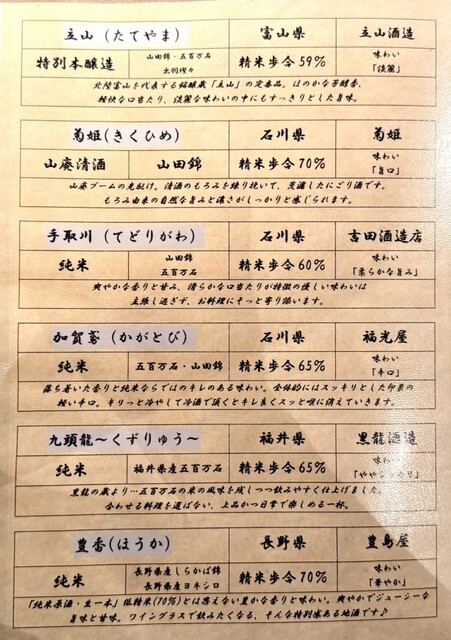 立山(たてやま) 富山県 立山酒造
特別本醸造 山田錦・五百万石 精米歩合59% 味わい
出羽燦々 「淡麗」
北陸富山を代表する銘醸蔵「立山」の定番品。ほのかな芳醇香、
軽快な口当たり、淡麗な味わいの中にもすっきりとした旨味。
菊姫(きくひめ) 石川県 菊姫
山廃清酒 山田錦 精米歩合70% 味わい
「旨口」
山廃ブームの先駆け。清酒のもろみを練り挽いて、荒濾したにごり酒です。
もろみ由来の自然な旨みと濃さがしっかりと感じられます。
手取川(てどりがわ) 石川県 吉田酒造店
純米 山田錦 精米歩合60% 味わい
五百万石 「柔らかな旨み」
爽やかな香りと甘み、滑らかな口当たりが特徴の優しい味わいは
主張し過ぎず、お料理にそっと寄り添います。
加賀鳶(かがとび) 石川県 福光屋
純米 五百万石・山田錦 精米歩合65% 味わい
「辛口」
落ち着いた香りと純米ならではのキレのある味わい。全体的にはスッキリとした印象の
軽い辛口。キリっと冷やして冷酒で頂くとキレ良くスッと喉に消えていきます。
九頭龍~くずりゅう~ 福井県 黒龍酒造
純米 福井県産五百万石 精米歩合65% 味わい
黒龍の蔵より…五百万石の米の風味を残しつつ飲みやすく仕上げました。
合わせる料理を選ばない、上品かつ日常で楽しめる一杯。
豊香(ほうか) 長野県 豊島屋
純米 長野県産しらかば錦 精米歩合70% 味わい
長野県産ヨネシロ 「華やか」
「純米原酒・生一本」低精米(70%)とは思えない豊かな香りと味わい。爽やかでジューシーな
旨味と甘味。ワイングラスで飲みたくなる、そんな特別感ある地酒です♪